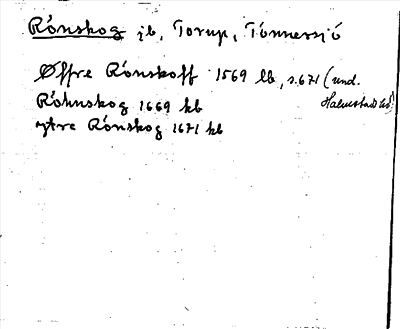 Rönskog jb, Torup, Tönnersjö
Øffre Rönskoff 1569 lb, s. 671 (und.
Halmstads led)
Röhnskog 1669 kb
ytre Rönskog 1671 kb